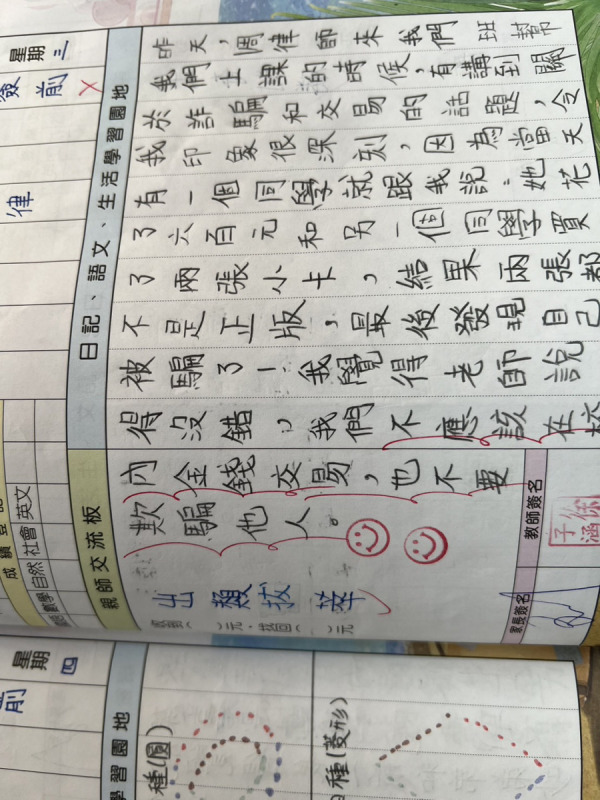 星期三
前
律
日記、語文、生活學習園地
昨天,周律師來我們班幫
我們上課的時候,有講到關
於詐騙和交易的話題,令
我印象很深刻,因為當天
有一個同學就跟我說:她花
了六百元和另一個同學買
了兩張小卡,結果兩張都
不是正版,最後發現自己
被騙了!我覺得老師說
得沒錯,我們不應該在校
內金錢交易,也不要
欺騙他人。
成績登記
英文
社會
自然
數學
親師交流板
出類拔萃
教師簽名
家長簽名
星期四
前
學習園地
種(圓)
種(菱形)